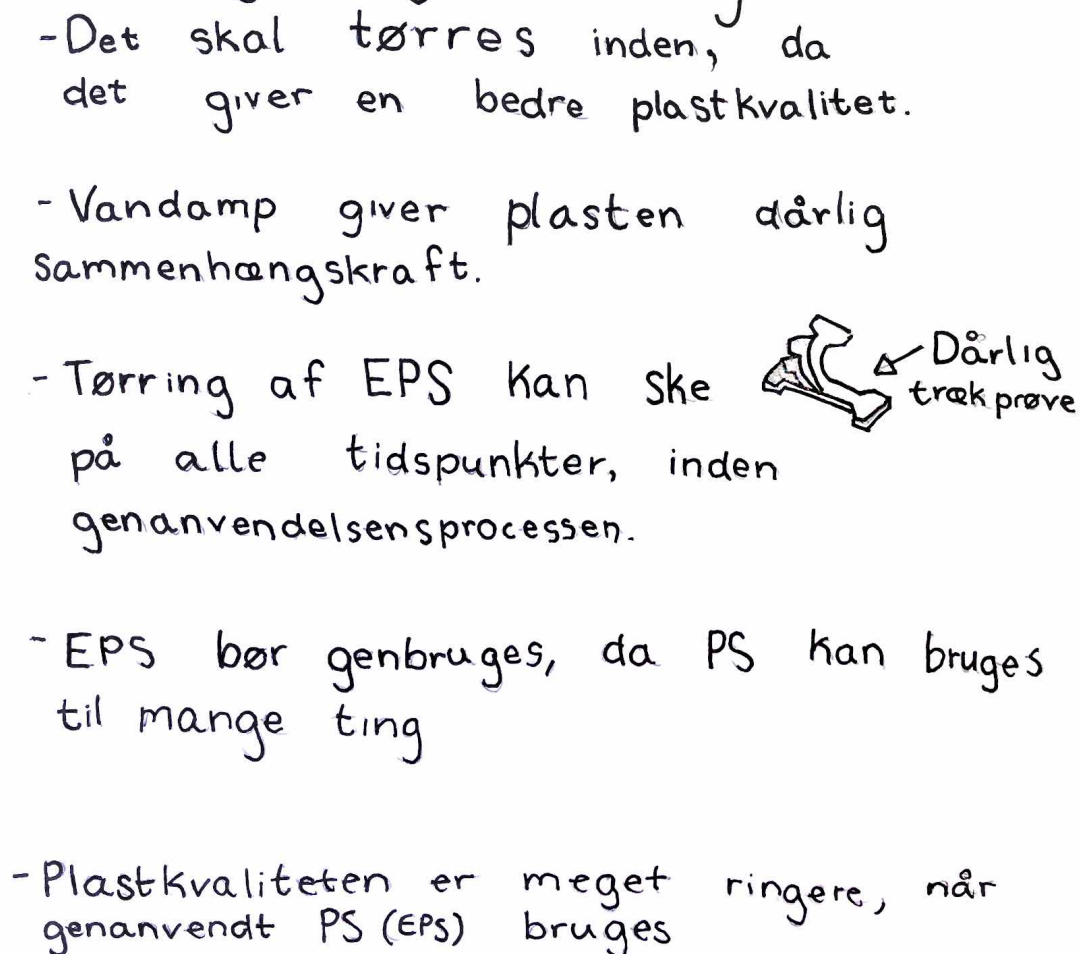 -Det skal tørres inden, da
det giver en bedre plastkvalitet.
- Vandamp giver plasten dårlig
sammenhængskraft.
- Tørring af EPS kan ske
på alle tidspunkter, inden
genanvendelsensprocessen.
Dårlig
træk prøve
- EPS bør genbruges, da PS kan bruges
til mange ting
- Plastkvaliteten er meget ringere, når
genanvendt PS (EPS) bruges